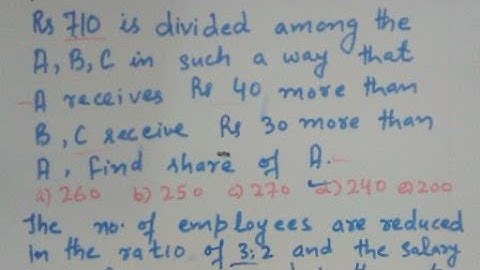 Rs 710 is divided among the
A, B, C in such a way that
A receives Rs 40 more than
B, C receive Rs 30 more than
A, find share of A.
a) 260 b) 250 c) 270 d) 240 e) 200
The no. of employees are reduced
in the ratio of 3:2 and the salary